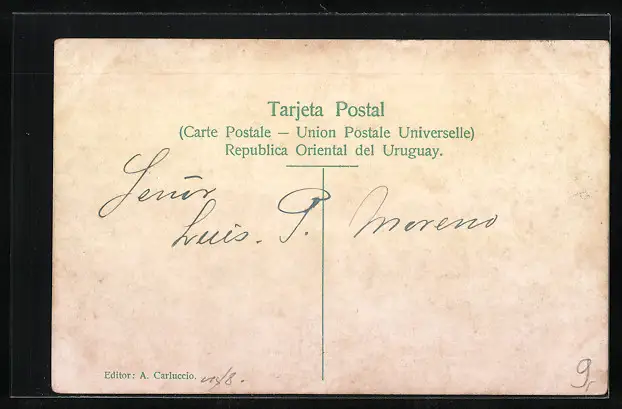 Tarjeta Postal
(Carte Postale — Union Postale Universelle)
Republica Oriental del Uruguay.
Señor
Luis. P. Moreno
Editor: A. Carluccio.
9,